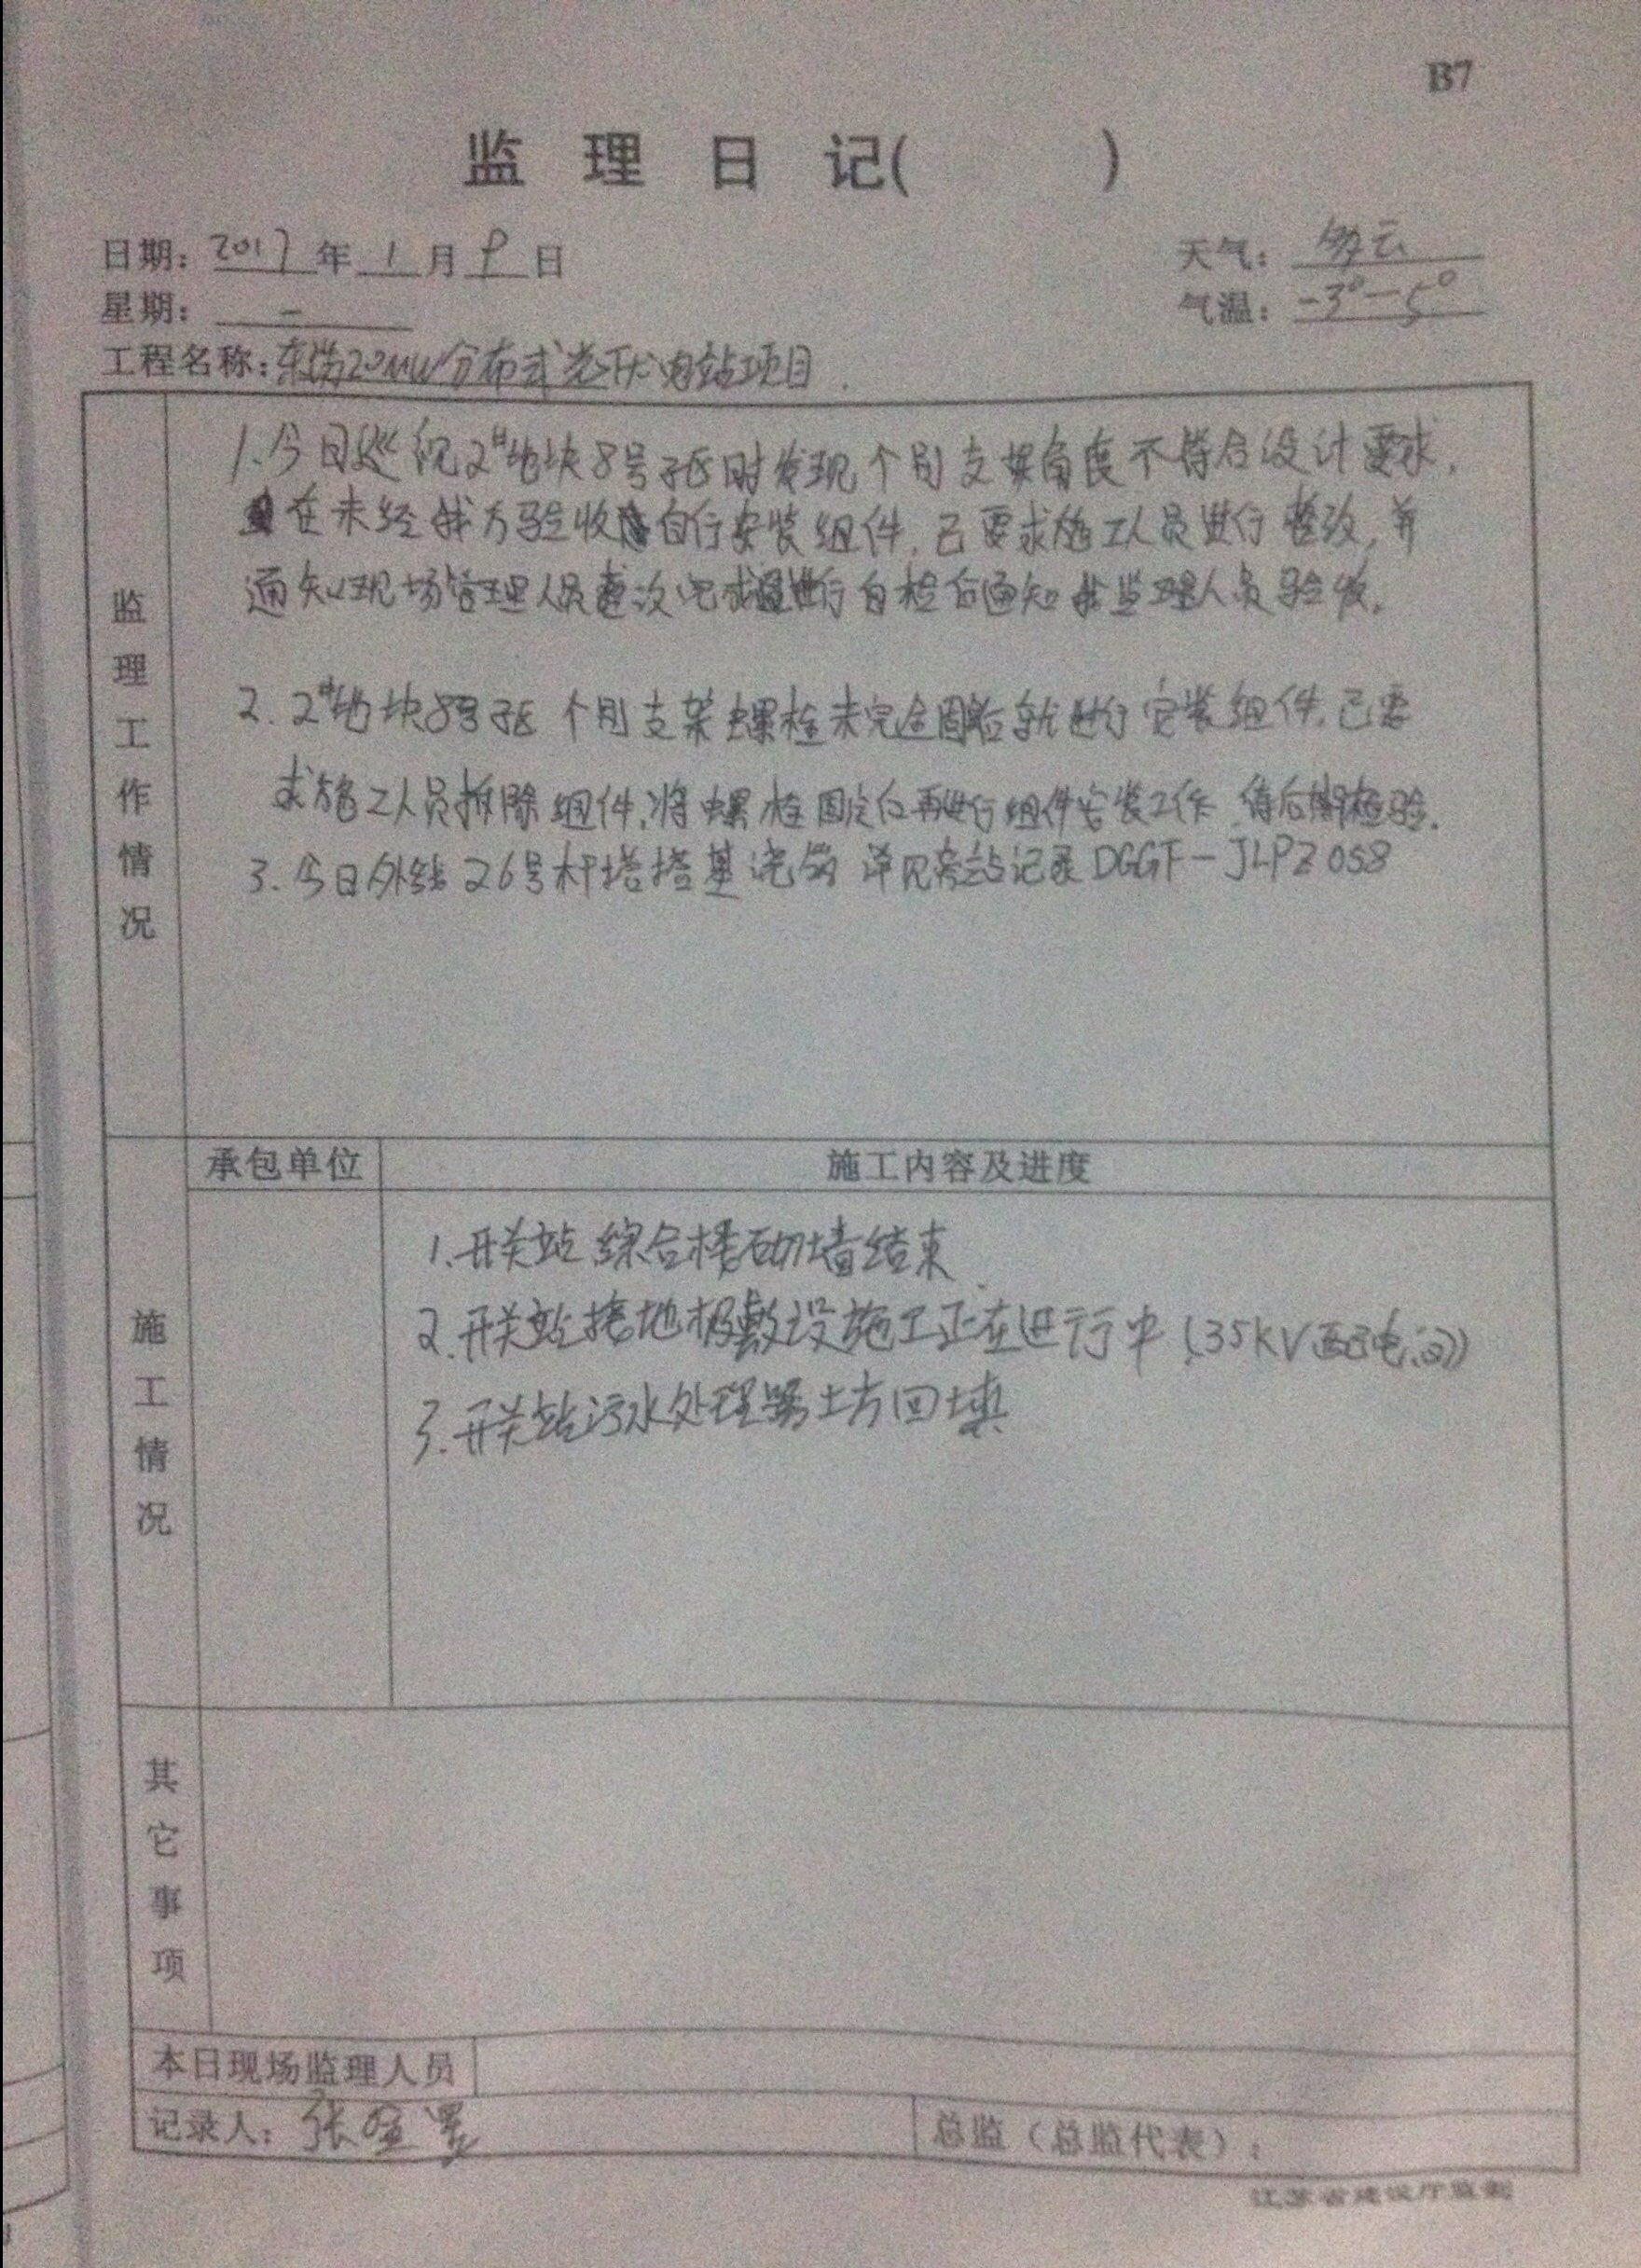 B7
监 理 日 记( )
日期: 2017 年 1 月 9 日
天气: 多云
星期: 一
气温: -3°-5°
工程名称: 东 20MW分布式光伏电站项目
监理工作情况
1.今日巡视2#地块8号区时发现个别支架角度不符合设计要求,
在未经我方验收自行安装组件,已要求施工人员进行整改,并
通知现场管理人员整改完成进行自检后通知我监理人员验收。
2. 2#地块8号区个别支架螺栓未完全固后就进行安装组件,已要
求施工人员拆除组件,将螺栓固定后再进行组件安装工作 待后期检验.
3.今日外线26号杆塔塔基浇筑 详见旁站记录DGGF-JLPZ058
承包单位 施工内容及进度
施工情况
1.开关站综合楼砌墙结束
2.开关站接地极敷设施工正在进行中(35kV配电间)
3.开关站污水处理器土方回填
其它事项
本日现场监理人员
记录人: 张
总监(总监代表):
江苏省建设厅监制